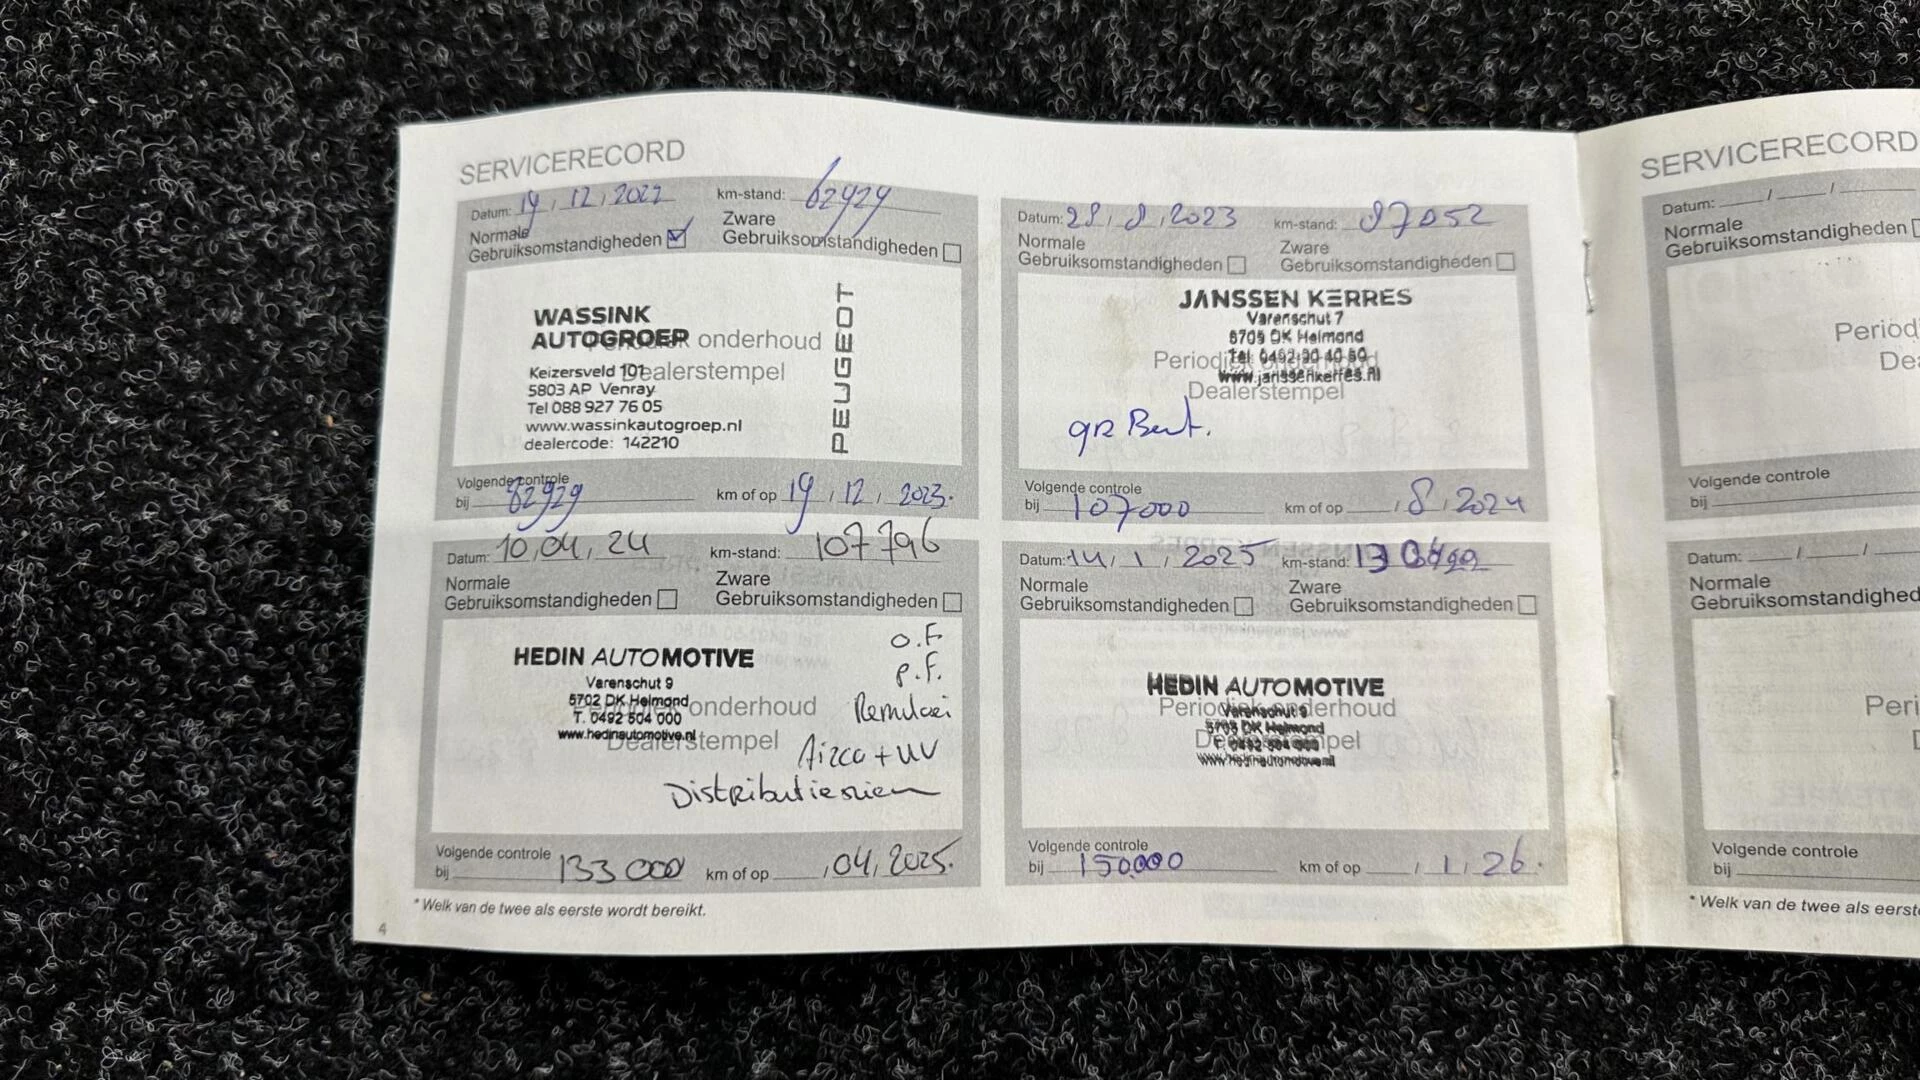 SERVICERECORD
Datum: 19, 12, 2022 km-stand: 62929
Normale Gebruiksomstandigheden
Zware Gebruiksomstandigheden
WASSINK
AUTOGROEP
Periodiek onderhoud
Dealerstempel
Keizersveld 101
5803 AP Venray
Tel 088 927 76 05
www.wassinkautogroep.nl
dealercode: 142210
PEUGEOT
Volgende controle
bij 82929 km of op 19, 12, 2023.
Datum: 28, 8, 2023 km-stand: 87052
Normale Gebruiksomstandigheden
Zware Gebruiksomstandigheden
JANSSEN KERRES
Varenschut 7
5705 DK Helmond
Tel. 0492-30 40 50
www.janssenkerres.nl
Periodiek onderhoud
Dealerstempel
gr Beurt.
Volgende controle
bij 107000 km of op , 8, 2024
Datum: 10, 04, 24 km-stand: 107796
Normale Gebruiksomstandigheden
Zware Gebruiksomstandigheden
HEDIN AUTOMOTIVE
Varenschut 9
5702 DK Helmond
T. 0492 504 000
www.hedinautomotive.nl
Periodiek onderhoud
Dealerstempel
O.F.
P.F.
Airco + UV
Distributieriem
Volgende controle
bij 133000 km of op , 04, 2025.
Datum: 14, 1, 2025 km-stand:
Normale Gebruiksomstandigheden
Zware Gebruiksomstandigheden
HEDIN AUTOMOTIVE
Varenschut 9
DK Helmond
www.hedinautomotive.nl
Periodiek onderhoud
Dealerstempel
Volgende controle
bij 150.000 km of op , 1, 26.
* Welk van de twee als eerste wordt bereikt.
4
SERVICERECORD
Datum: / /
Normale
Gebruiksomstandigheden
Volgende controle
bij
Datum: / /
Normale
Volgende controle
bij
* Welk van de twee als